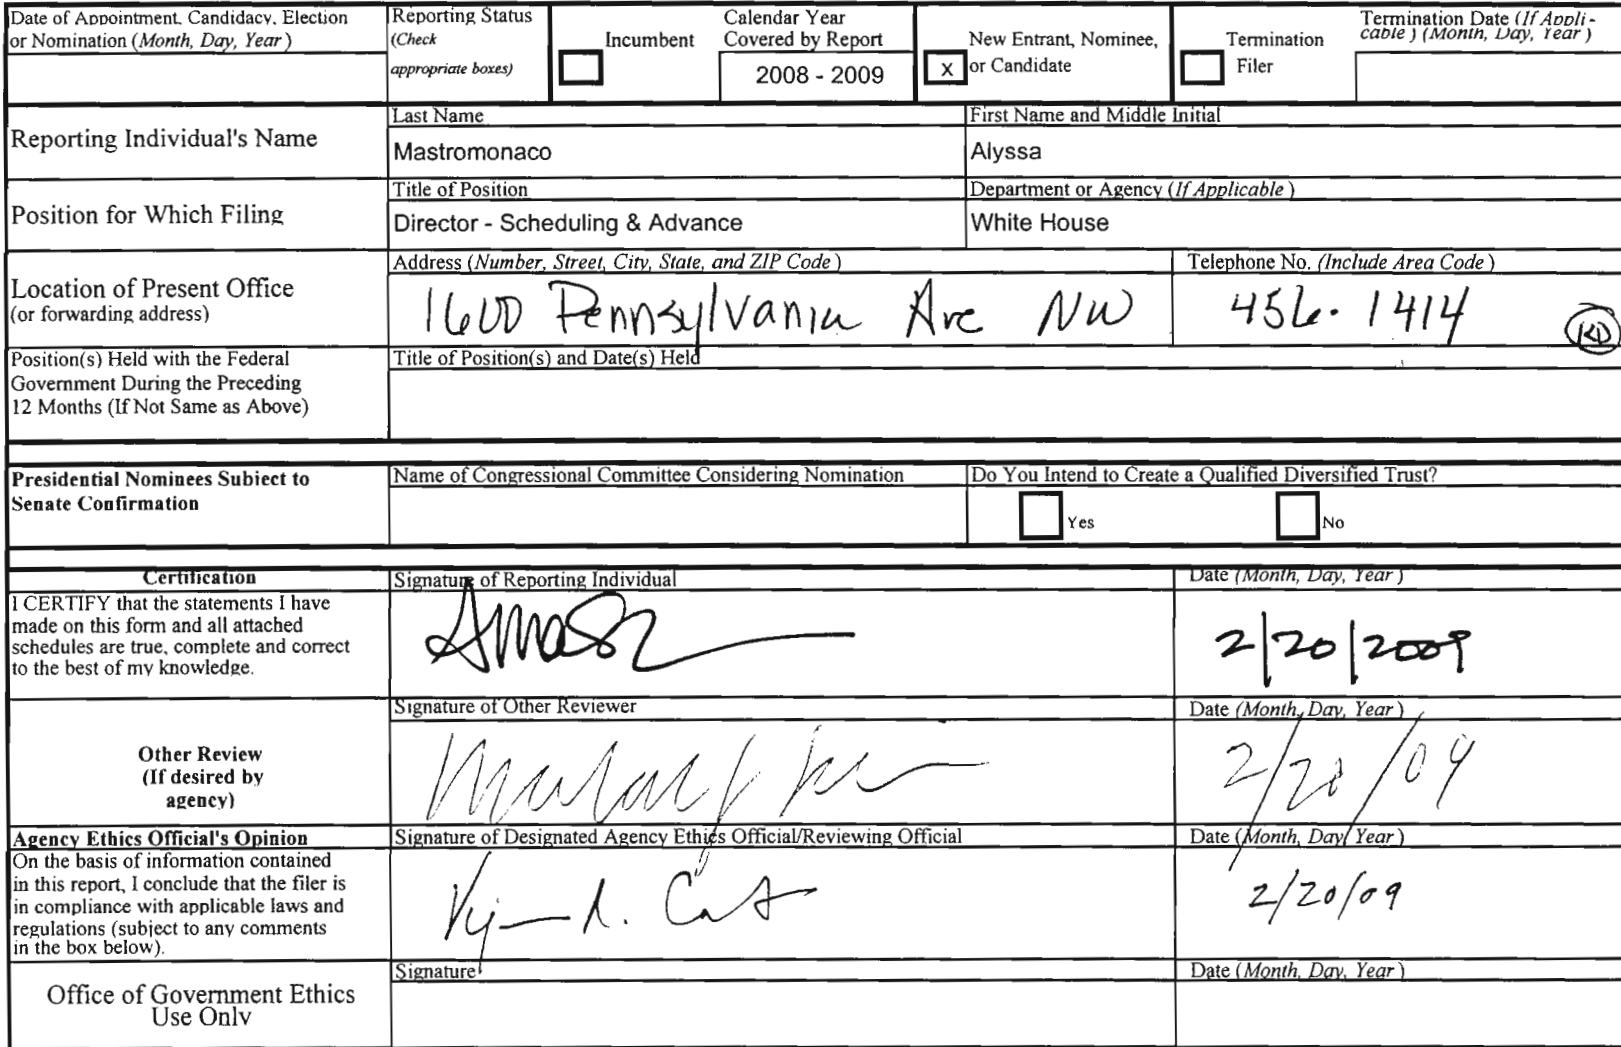 Date of Appointment, Candidacy, Election
or Nomination (Month, Day, Year)
Reporting Status
(Check
appropriate boxes)
Incumbent
Calendar Year
Covered by Report
2008 - 2009
x
New Entrant, Nominee,
or Candidate
Termination
Filer
Termination Date (If Appli-
cable) (Month, Day, Year)
Reporting Individual's Name
Last Name
Mastromonaco
First Name and Middle Initial
Alyssa
Position for Which Filing
Title of Position
Director - Scheduling & Advance
Department or Agency (If Applicable)
White House
Location of Present Office
(or forwarding address)
Address (Number, Street, City, State, and ZIP Code)
1600 Pennsylvania Ave NW
Telephone No. (Include Area Code)
456. 1414
KD
Position(s) Held with the Federal
Government During the Preceding
12 Months (If Not Same as Above)
Title of Position(s) and Date(s) Held
Presidential Nominees Subject to
Senate Confirmation
Name of Congressional Committee Considering Nomination
Do You Intend to Create a Qualified Diversified Trust?
Yes
No
Certification
I CERTIFY that the statements I have
made on this form and all attached
schedules are true, complete and correct
to the best of my knowledge.
Signature of Reporting Individual
Date (Month, Day, Year)
2/20/2009
Other Review
(If desired by
agency)
Signature of Other Reviewer
Date (Month, Day, Year)
2/20/09
Agency Ethics Official's Opinion
On the basis of information contained
in this report, I conclude that the filer is
in compliance with applicable laws and
regulations (subject to any comments
in the box below).
Signature of Designated Agency Ethics Official/Reviewing Official
Date (Month, Day, Year)
2/20/09
Office of Government Ethics
Use Only
Signature
Date (Month, Day, Year)